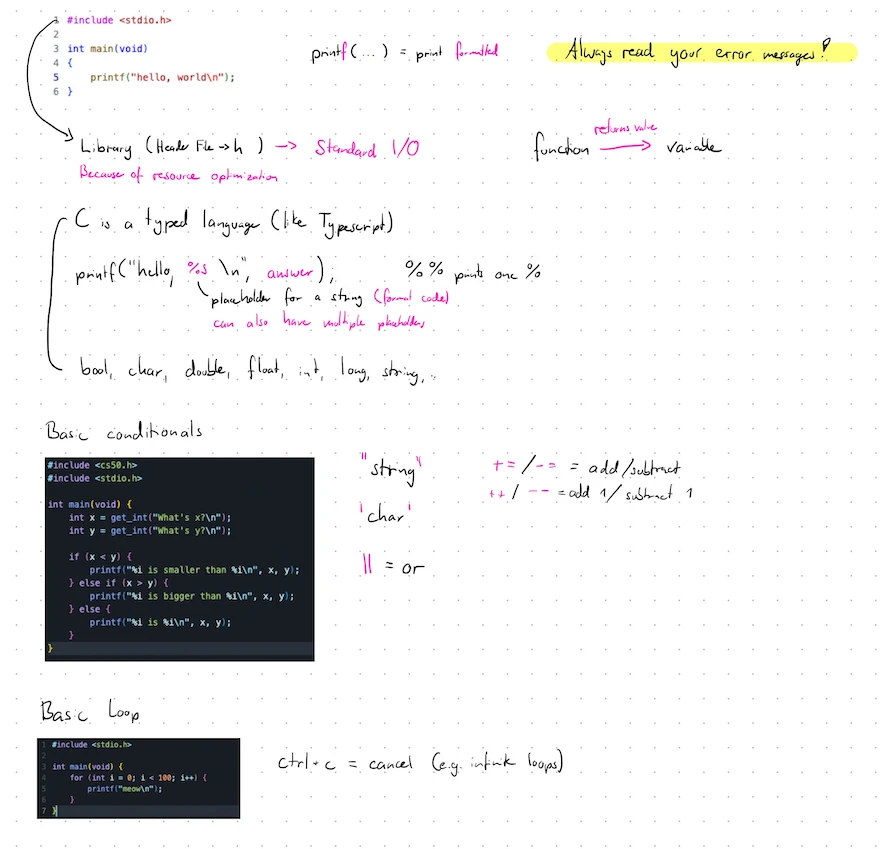 1 #include <stdio.h>
2
3 int main(void)
4 {
5 printf("hello, world\n");
6 }
printf(...) = print formatted
Always read your error messages!
Library (Header File → h ) → Standard I/O
Because of resource optimization
function returns value → variable
C is a typed language (like Typescript)
printf("hello, %s \n", answer); %% prints one %
placeholder for a string (format code)
can also have multiple placeholders
bool, char, double, float, int, long, string, ..
Basic conditionals
#include <cs50.h>
#include <stdio.h>
int main(void) {
int x = get_int("What's x?\n");
int y = get_int("What's y?\n");
if (x < y) {
printf("%i is smaller than %i\n", x, y);
} else if (x > y) {
printf("%i is bigger than %i\n", x, y);
} else {
printf("%i is %i\n", x, y);
}
}
"string"
'char'
|| = or
+= / -= = add/subtract
++ / -- = add 1/subtract 1
Basic Loop
1 #include <stdio.h>
2
3 int main(void) {
4 for (int i = 0; i < 100; i++) {
5 printf("meow\n");
6 }
7 }
ctrl + c = cancel (e.g. infinite loops)